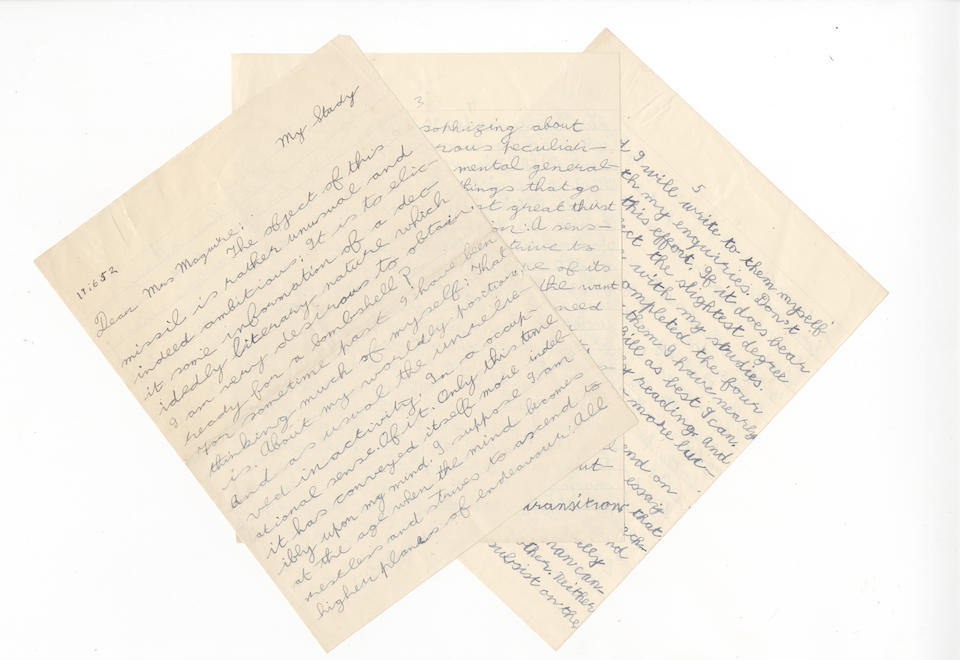 My Study
19.6.52
Dear Mrs Maguire:
The object of this
missil is rather unusual and
indeed ambitious: It is to elic-
it some information of a dec-
idedly literary nature which
I am very desirous to obtain.
ready for a bombshell?
For sometime past I have been
thinking much of myself: That
is. About my worldly position.
And as usual the unrelie-
ved inactivity, In a occup-
ational sense. Of it. Only this time
it has conveyed itself more indel-
ibly upon my mind. I suppose I am
at the age when the mind becomes
restless and strives to ascend to
higher planes of endeavour. All
3
sophizing about
rous peculiari-
mental general
things that go
st great thirst
on: A sens-
strive to
re of its
the want
need
ut
transition
5
I will write to them myself
th my enquiries. Don't
this effort. If it does bear
ect the slightest degree
with my studies.
ompleted the four
them I have nearly
ill as best I can.
t reading and
more luc-
end on
essay
that
ack-
rd
elly
ran can-
ther. Neither
subsist on the